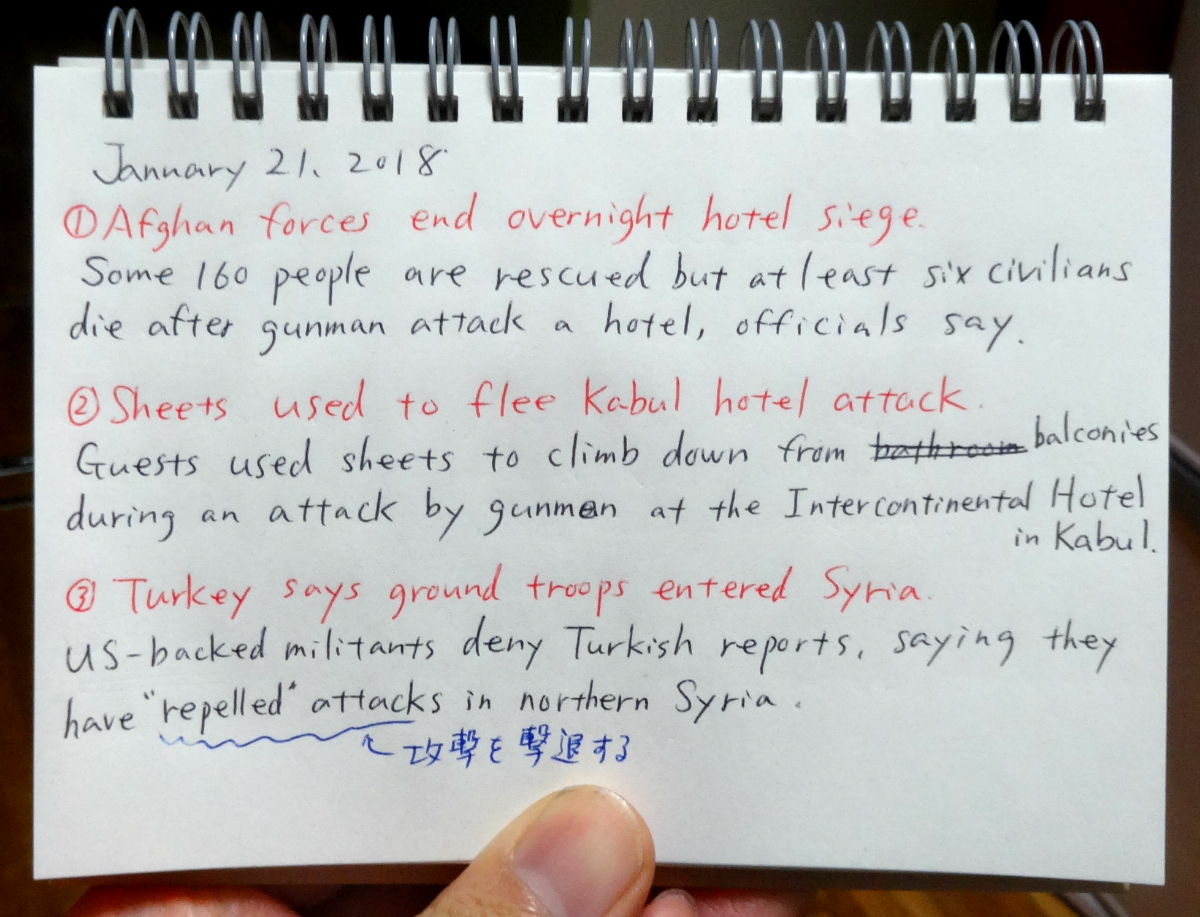 January 21, 2018
① Afghan forces end overnight hotel siege.
Some 160 people are rescued but at least six civilians
die after gunman attack a hotel, officials say.
② Sheets used to flee Kabul hotel attack.
Guests used sheets to climb down from bathroom balconies
during an attack by gunmen at the Intercontinental Hotel
in Kabul.
③ Turkey says ground troops entered Syria.
US-backed militants deny Turkish reports, saying they
have "repelled" attacks in northern Syria.
攻撃を撃退する